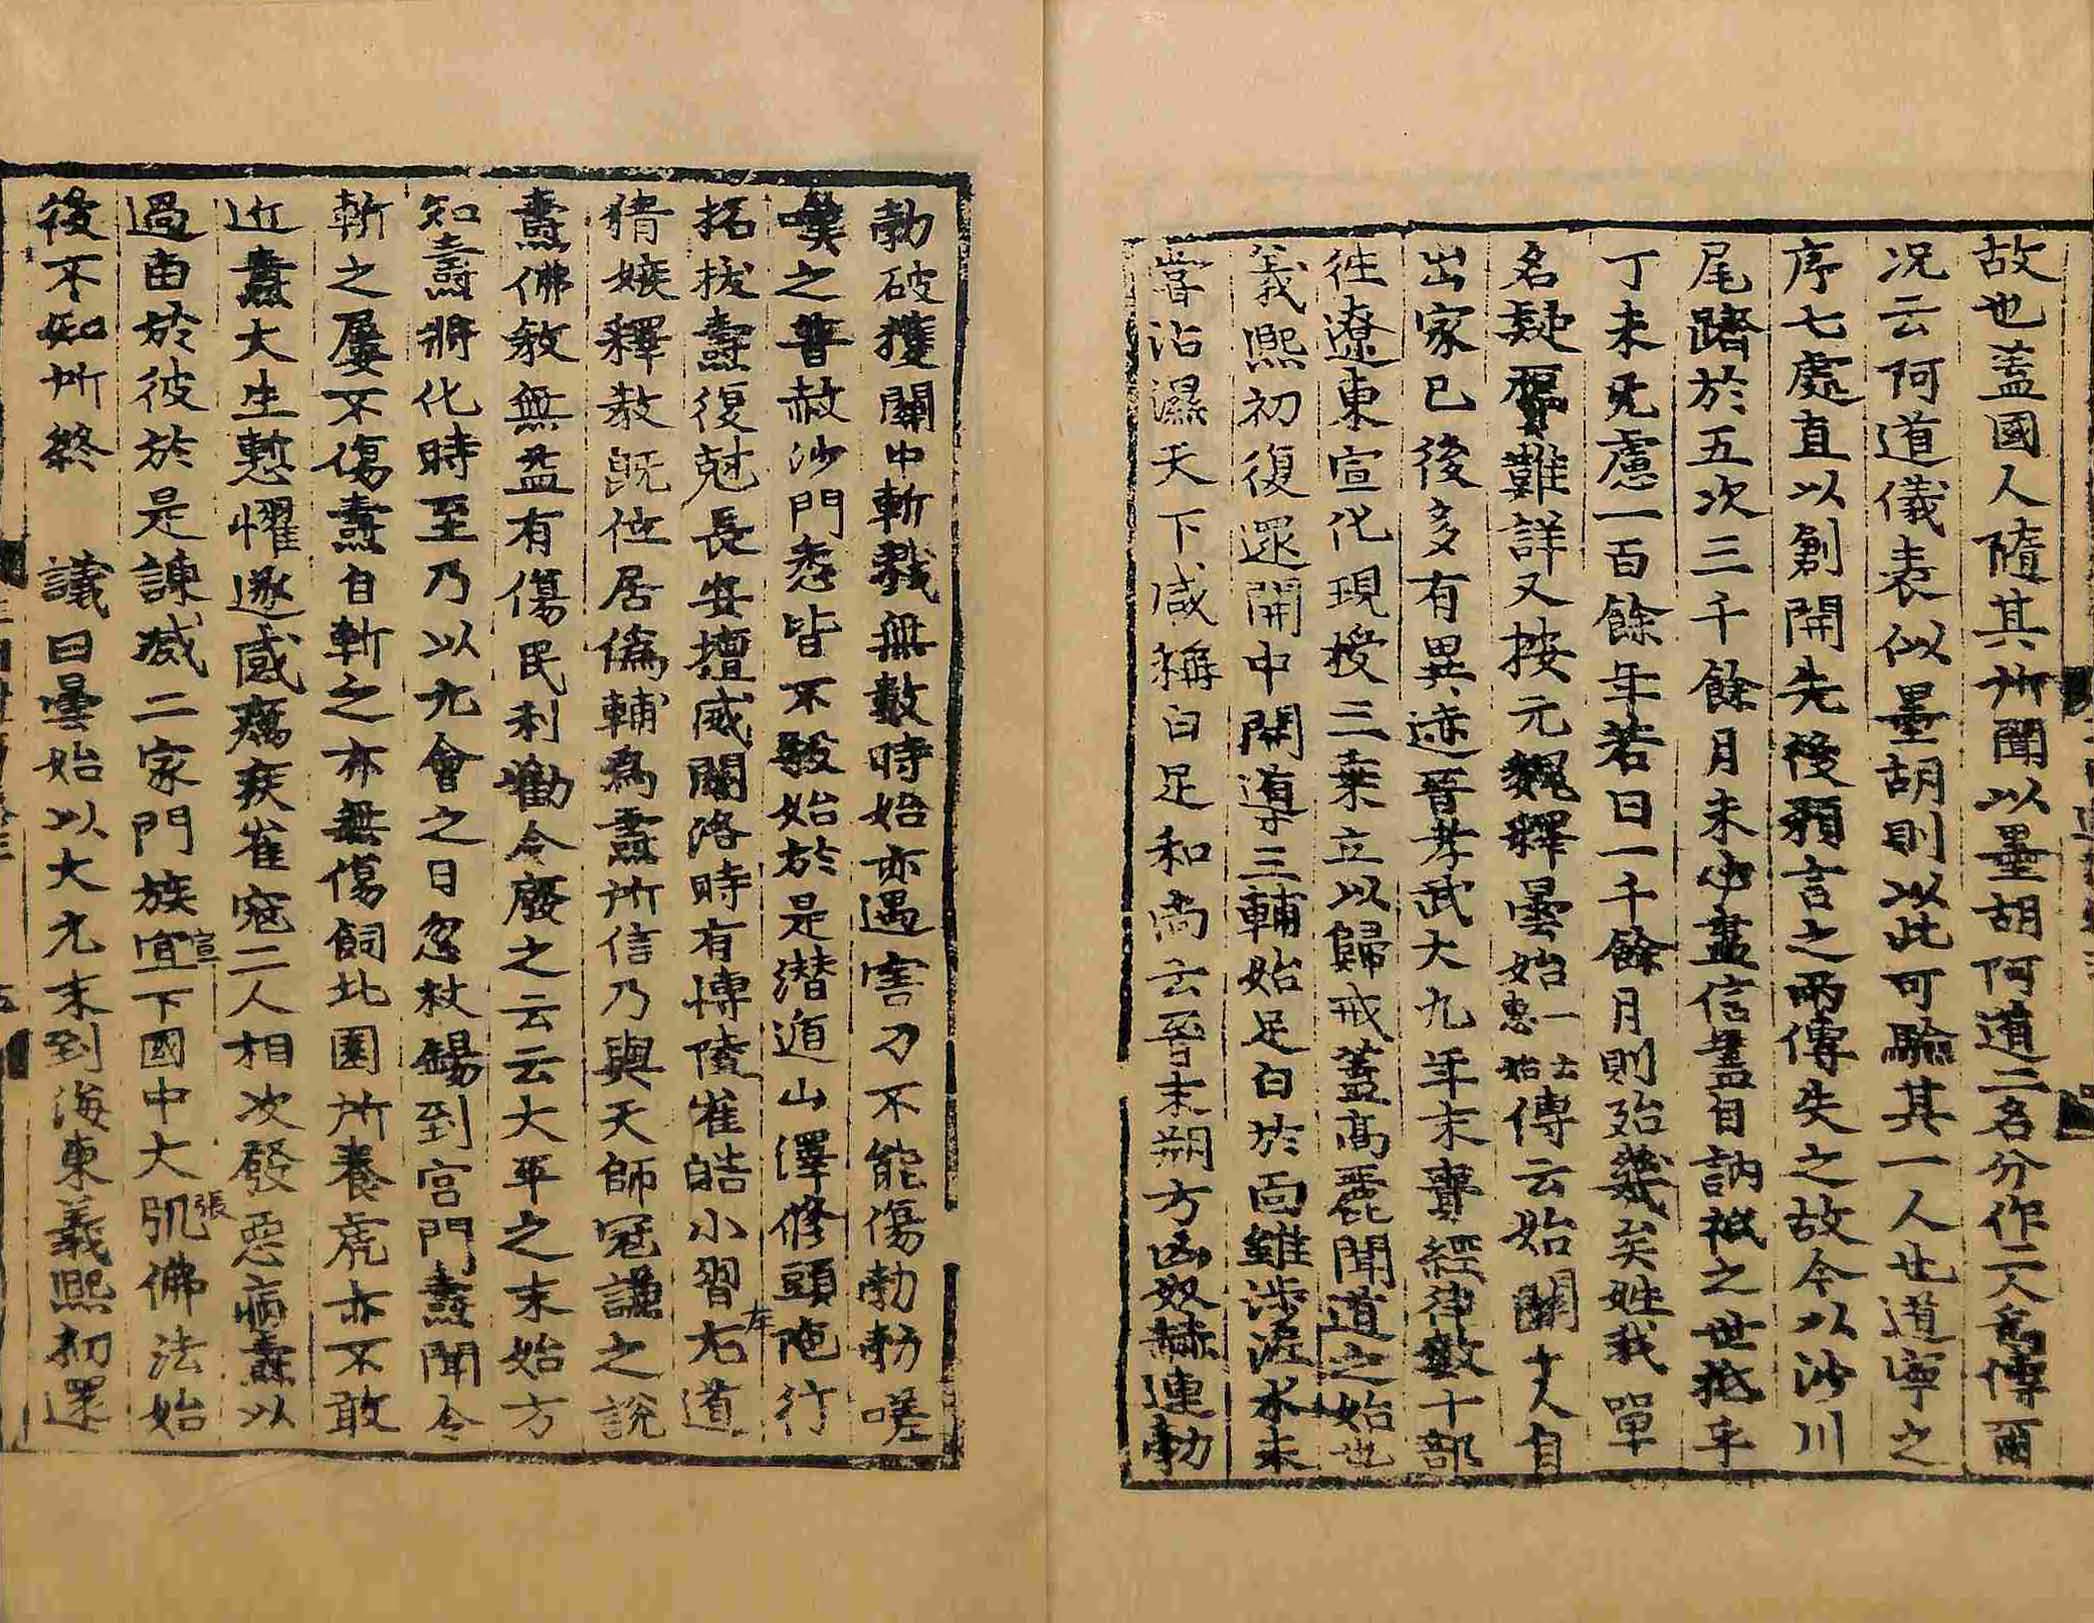 故也盖國人隨其所聞以墨胡阿道二名分作二人爲傳爾
况云阿道儀表似墨胡則以此可驗其一人也道寧之
序七處直以創開先後預言之兩傳失之故今以沙川
尾躋於五次三千餘月未必盡信盖自訥祗之世抵乎
丁未旡慮一百餘年若曰一千餘月則殆幾矣姓我單
名疑贗難詳又按元魏釋曇始一云惠始傳云始關中人自
出家已後多有異迹晉孝武大九年末賷經律數十部
徃遼東宣化現授三乗立以歸戒蓋髙麗聞道之始也
義熈初復還開中開導三輔始足白於面雖涉泥水未
甞沾濕天下咸稱白足和尚云晉末朔方凶奴赫連勃
勃破獲關中斬戮無數時始亦遇害刀不能傷勃勃嗟
嘆之普赦沙門悉皆不殺始於是潜遁山澤修頭陁行
拓拔燾復尅長安擅威關洛時有愽陵崔皓小習右道
左
猜嫉釋教旣位居僞輔爲燾所信乃與天師冦謙之說
燾佛教無益有傷民利勸令廢之云云大平之末始方
知燾將化時至乃以元會之日忽杖錫到宫門燾聞令
斬之屢不傷燾自斬之亦無傷飼北園所養虎亦不敢
近燾大生慙懼遂感癘疾崔冦二人相次發惡病燾以
過由於彼於是誅滅二家門族宣下國中大㲋佛法始
宣
張
後不知所終　議曰曇始以大元末到海東義熈初還